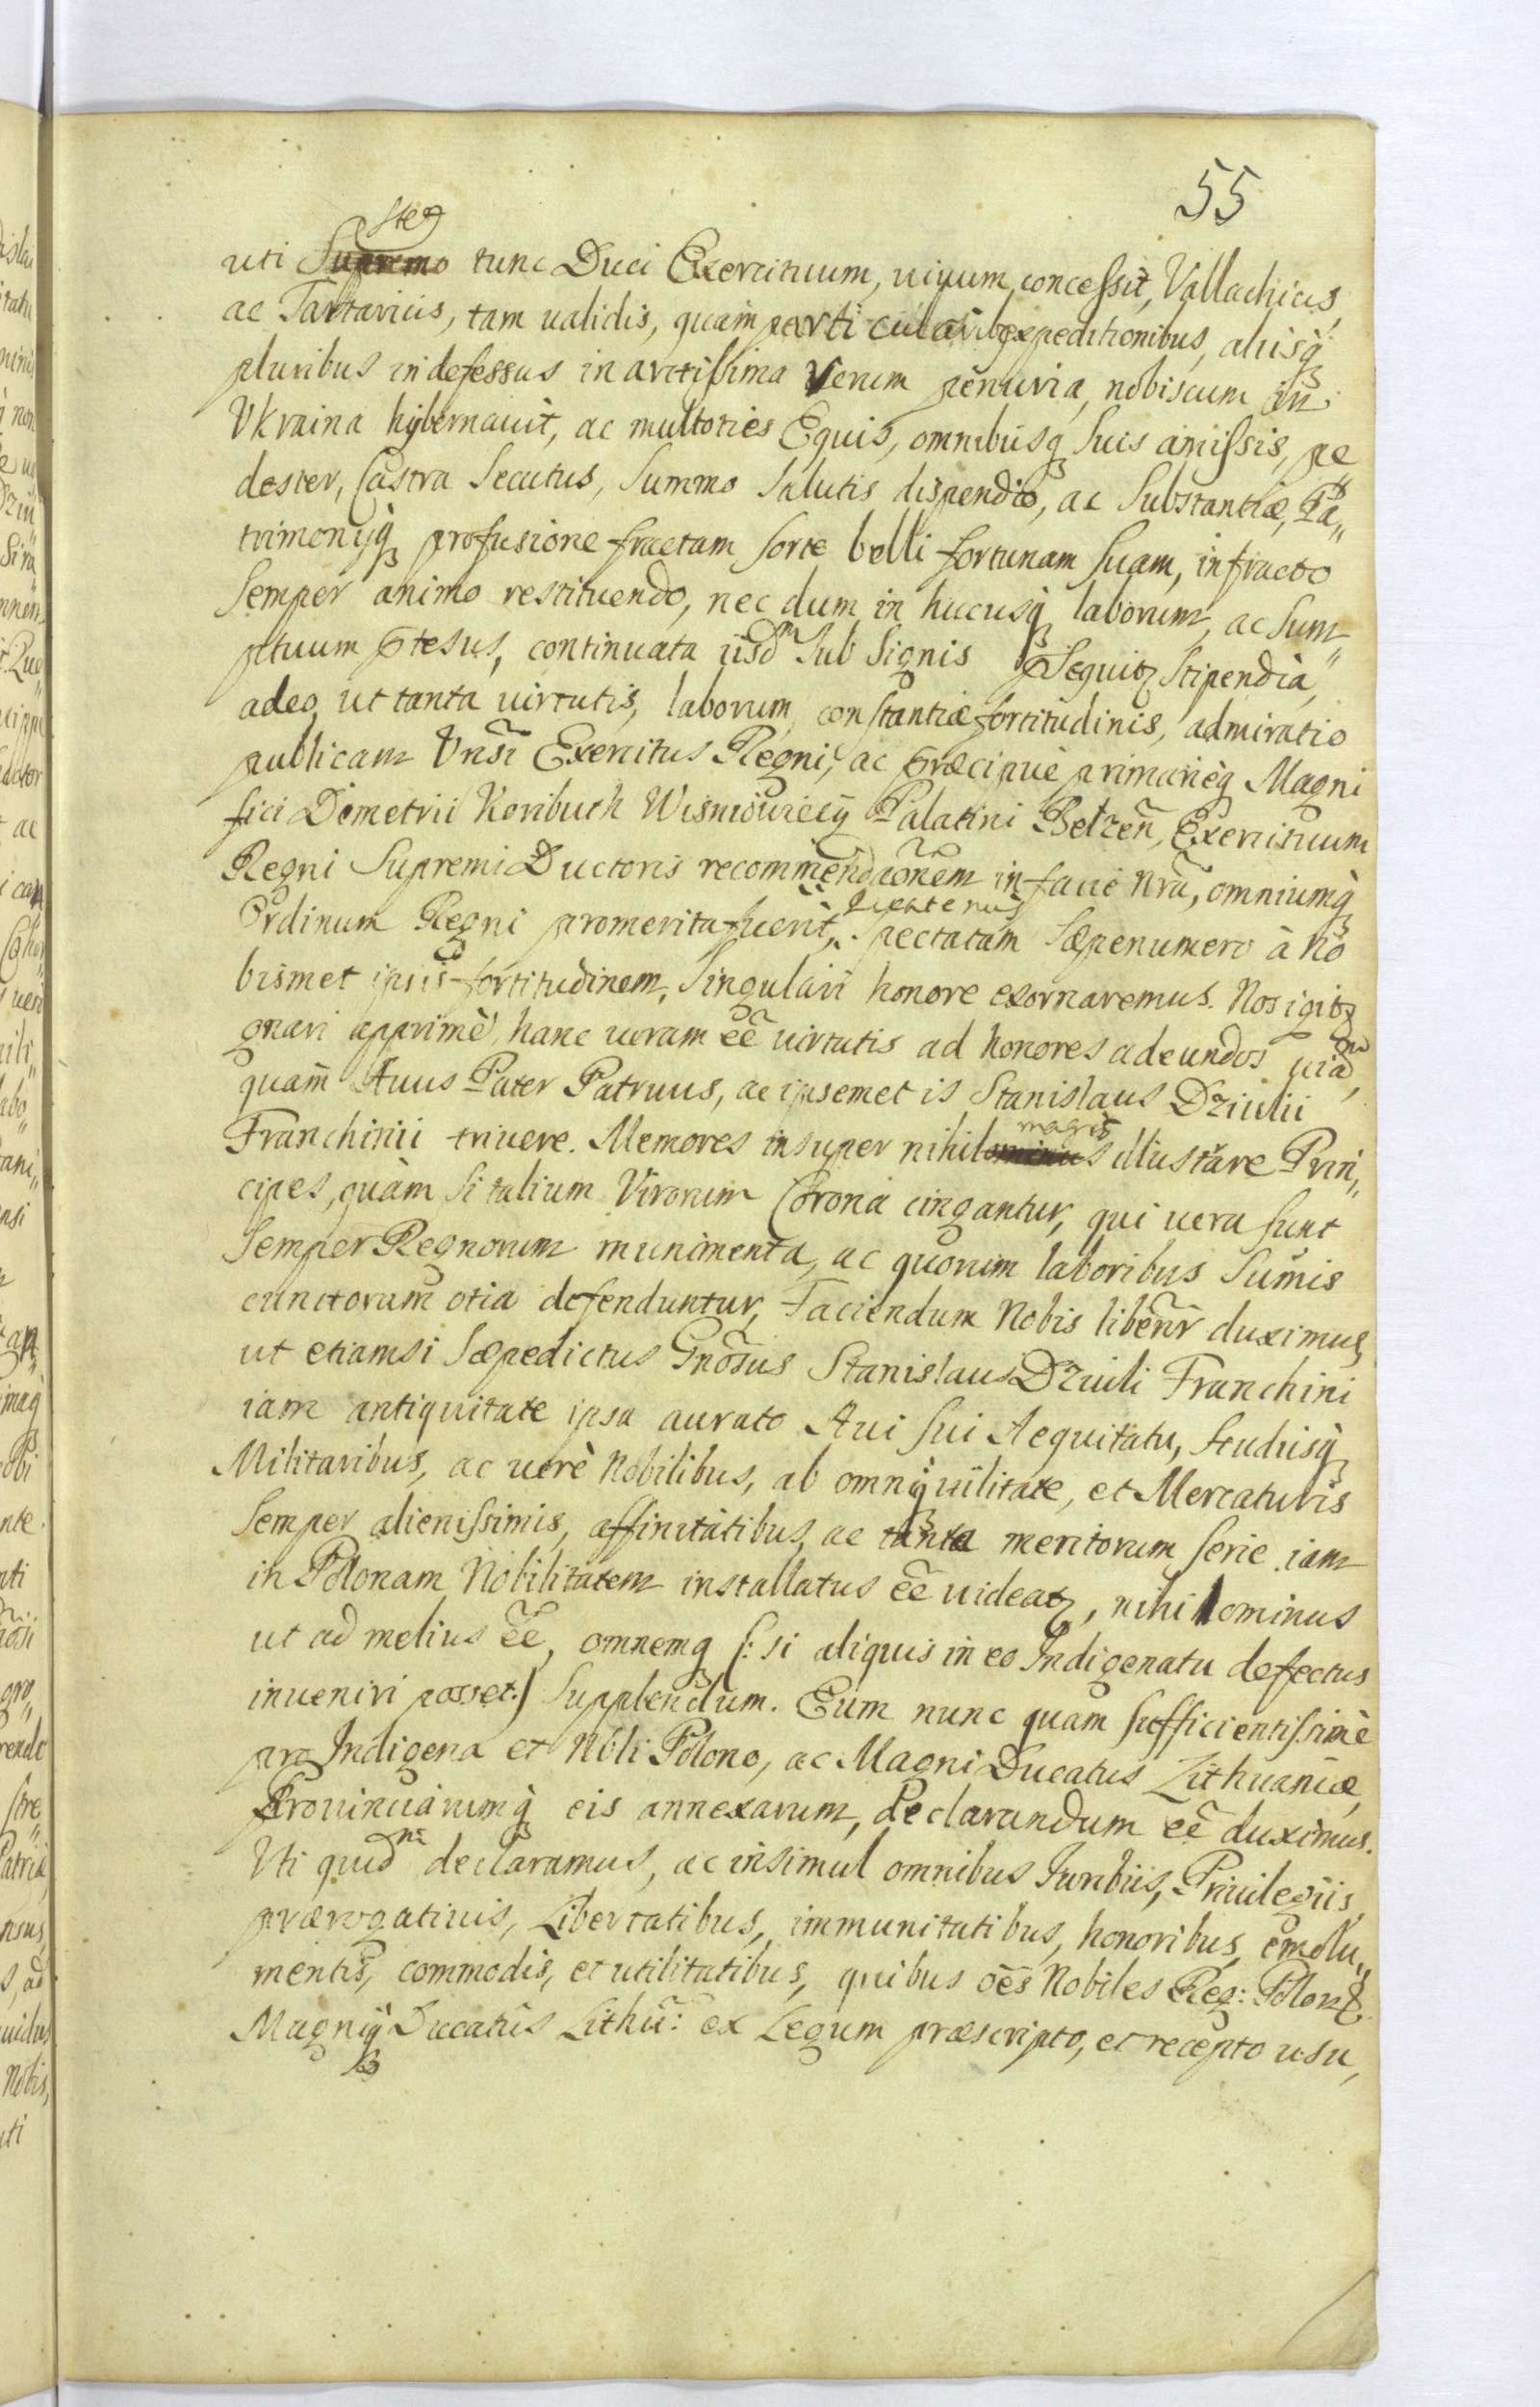 55
uti Supremo tunc Duci Exercituum, uiuum concessit, Vallachicis,
ac Tartariis, tam ualidis, quàm particularibg expeditionibus, alijsq̀
pluribus indefessus in arctissima Verum penuria, nobiscum in
Vkraina hybernauit, ac multoties Equis, omnibusq suis amissis, pe
dester, Castra Secutus, Summo Salutis dispendio, ac Substantiæ, Pa„
trimonijq profusione fractam sorte belli fortunam Suam, infracto
Semper animo restituendo, nec dum in hucusq̀ laborum, ac Sum„
ptuum ptesus, continuata iisdm Sub Signis pSequitz Stipendia,
adeo, ut tanta uirtutis, laborum, constantiæ fortitudinis, admiratio
publicam Vnsĩ Exercitus Regni, ac præcipuè primarieq Magni
fici Demetrii Koributh Wisniouiecij Palatini Belzeñ, Exercituum
Regni Supremi Ductoris recommendaõnem in facie nrã, omniumq̀
Ordinum Regni promerita fuerit, quatenus Spectatam Sæpenumero à No
bismet ipsis fortitudinem, Singulari honore exornaremus. Nos igitz
gnari apprimè, hanc ueram eẽ uirtutis ad honores adeundos uiam,
quam Auus Pater Patruus, ac ipsemet is Stanislaus Dziulii
Franchinii triuere. Memores insuper nihilominus magis illustrare Prin„
cipes, quàm Si talium Virorum Corona cingantur, qui uera Sunt
Semper Regnorum munimenta, ac quorum laboribus Sum̃is
cunctorum otia defenduntur, Faciendum Nobis libenr̃ duximus,
ut etiamsi Sæpedictus Gnõsus Stanislaus Dziuli Franchini
iam antiquitate ipsa aurato Aui Sui Aequitatu, Studiisq̀
Militaribus, ac uerè Nobilibus, ab omniq̀ uilitate, et Mercaturis
Semper alienissimis, affinitatibus, ac tanta meritorum Serie iam
in Polonam Nobilitatem installatus eẽ uideatz, nihilominus
ut ad melius eẽ, omnemq (: si aliquis in eo Indigenatu defectus
inueniri posset:) Supplendum. Eum nunc quam Sufficientissimè
pro Indigena et Nbli Polono, ac Magni Ducatus Lithuaniæ,
Prouinciarumq̀ eis annexarum, Declarandum eẽ duximus.
Vti quidm declaramus, ac insimul omnibus Juribus, Priuilegiis,
prærogatiuis, Libertatibus, immunitatibus, honoribus, emolu„
mentis, commodis, et utilitatibus, quibus oẽs Nobiles Reg: Polon
Magniq̀ Ducatûs Lithũ: ex Legum præscripto, et recepto usu,